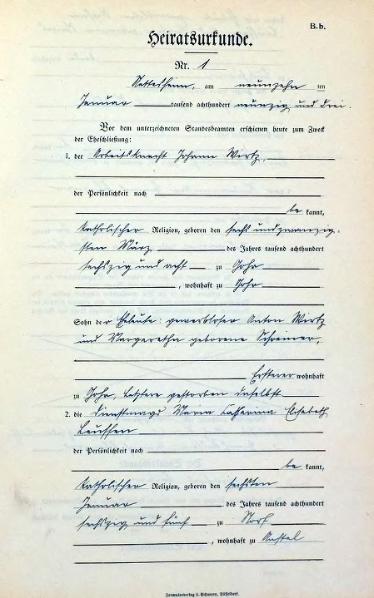 B. b.
Heiratsurkunde.
Nr. 1
Nettesheim, am neunzehn ten
Januar tausend achthundert neunzig und drei.
Vor dem unterzeichneten Standesbeamten erschienen heute zum Zweck
der Eheschließung:
1. der Arbeitsknecht Johann Wertz,
der Persönlichkeit nach
be kannt,
katholischer Religion, geboren den sechs und zwanzig-
sten März des Jahres tausend achthundert
sechszig und acht zu Gohr
, wohnhaft zu Gohr
Sohn der Eheleute: gewerbloser Anton Wertz
und Margaretha geborene Schreiner,
Ersterer wohnhaft
zu Gohr, Letztere gestorben daselbst
2. die Dienstmagd Maria Catharina Elisabeth
der Persönlichkeit nach
be kannt,
katholischer Religion, geboren den sechsten
Januar des Jahres tausend achthundert
sechszig und fünf zu Norf
, wohnhaft zu Anstel